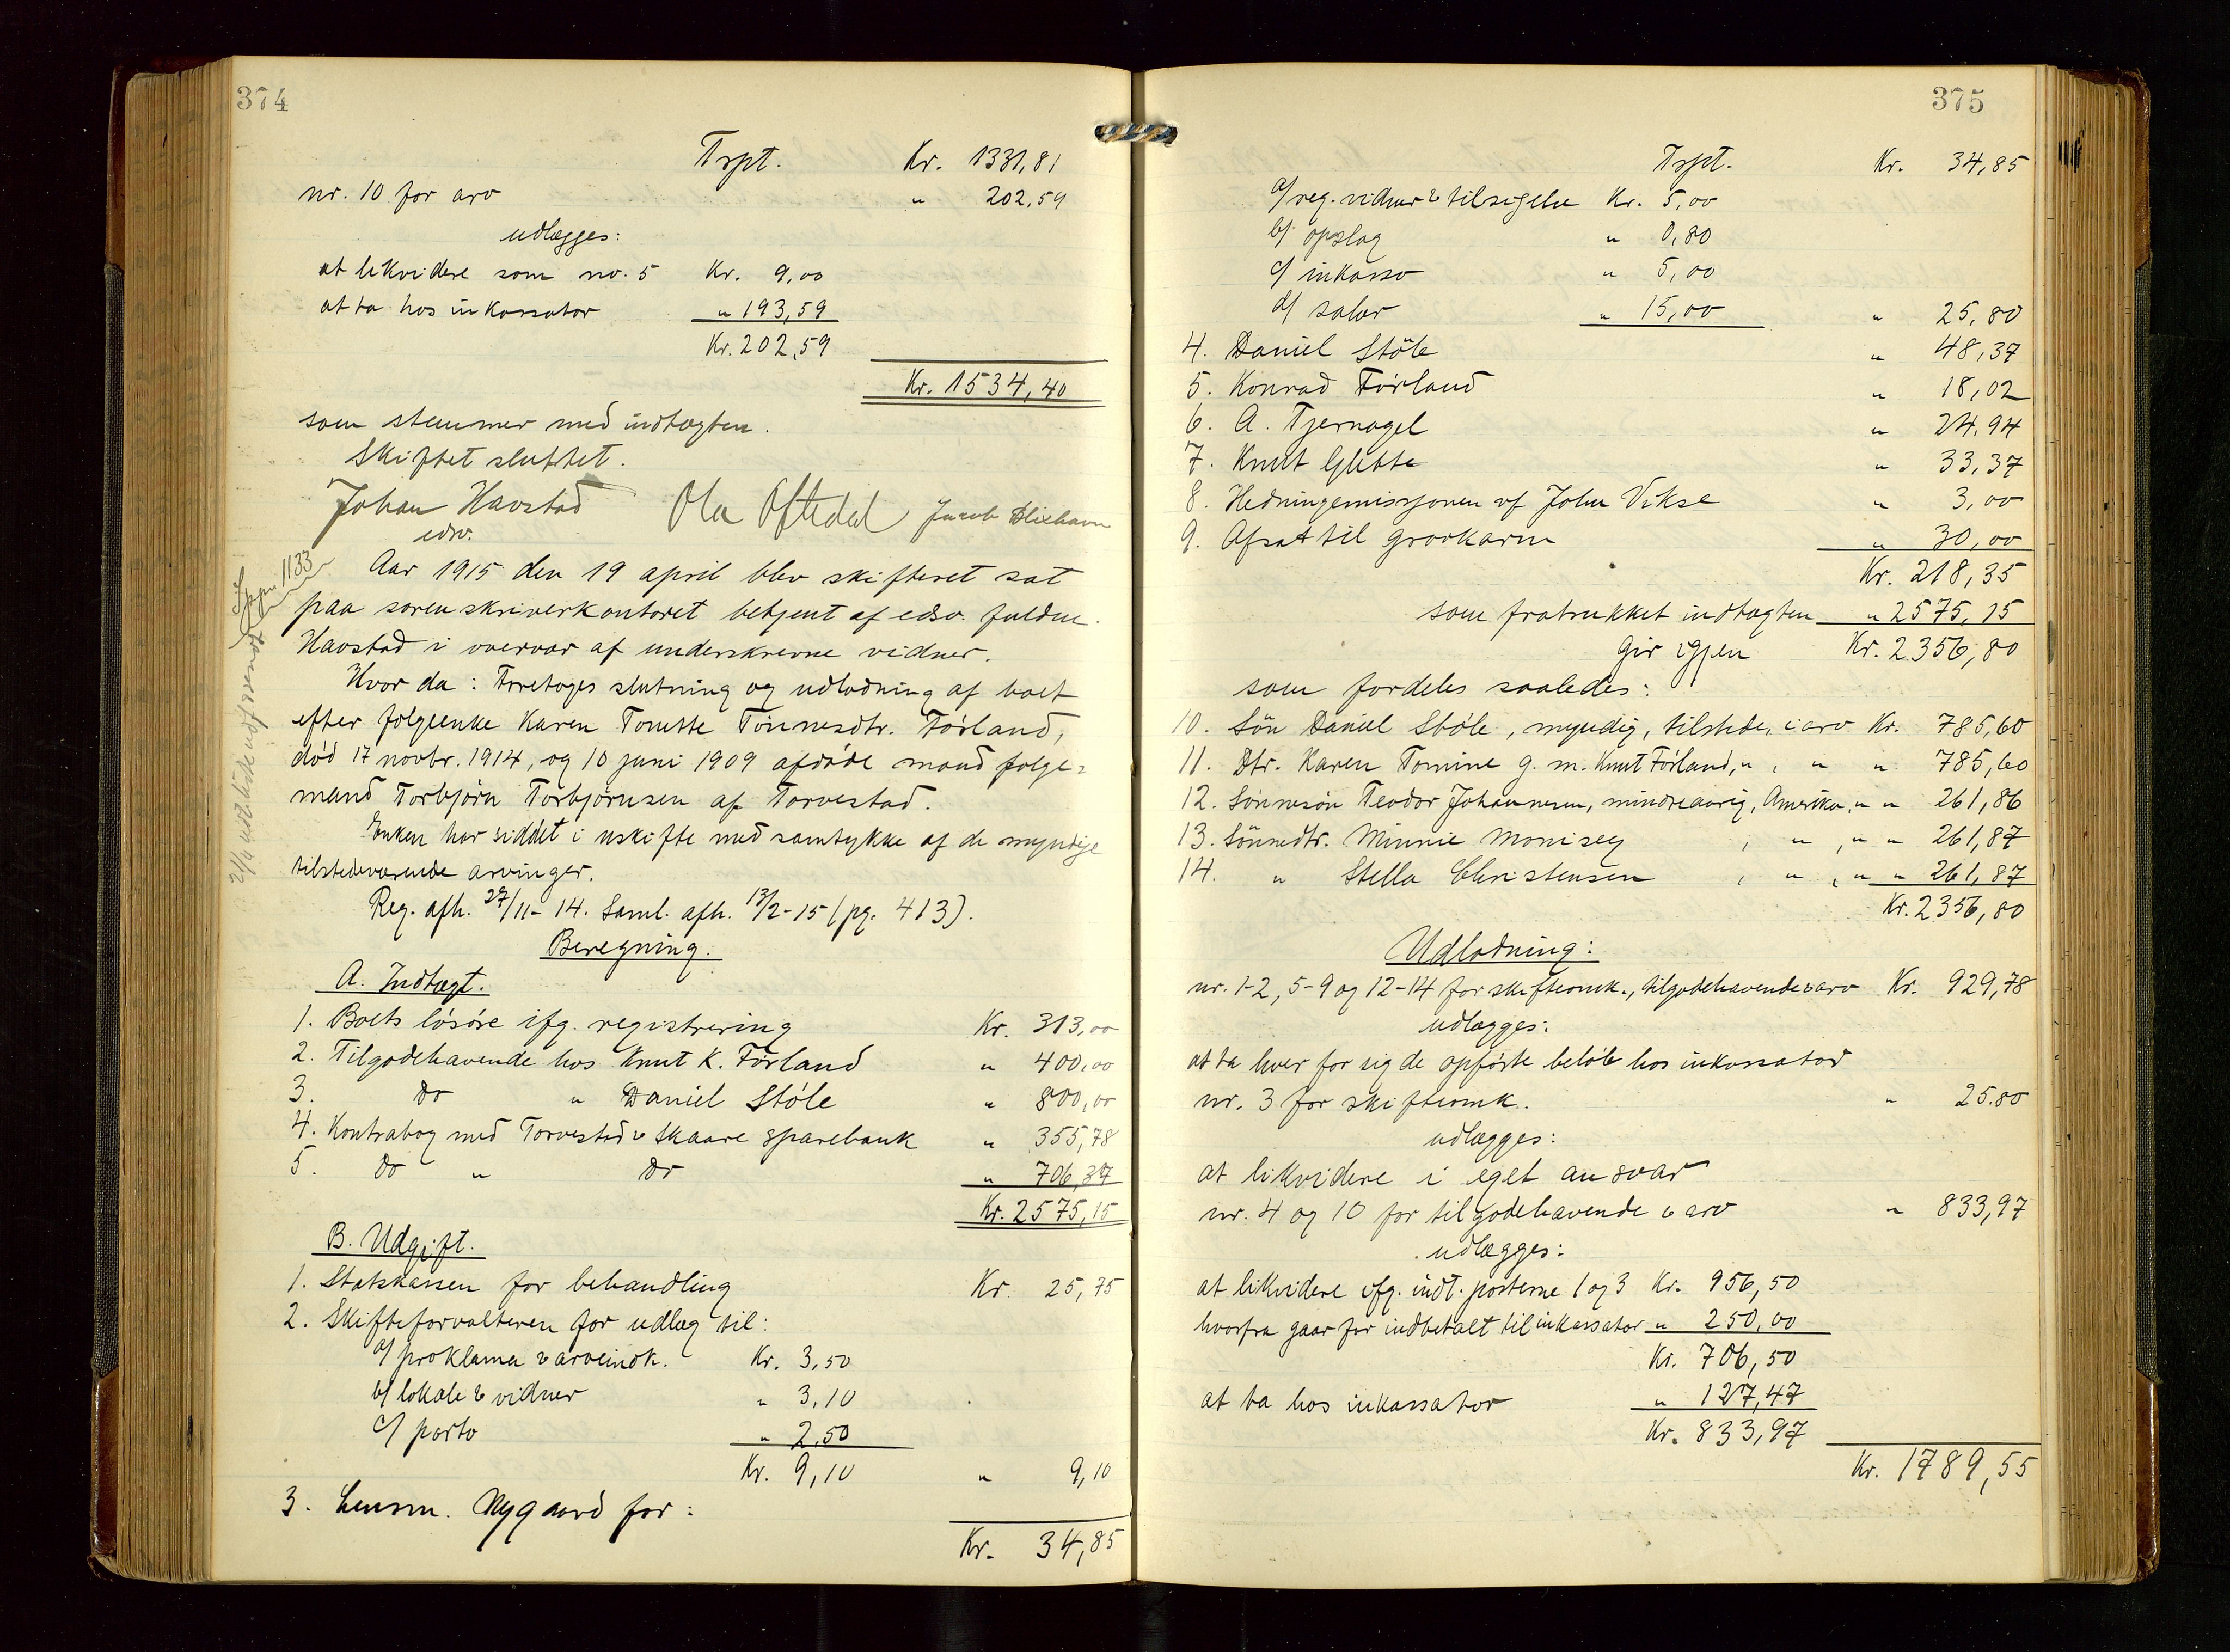 374
Trspt. Kr. 1331,81
nr. 10 for arv " 202,59
udlægges:
at likvidere som nr. 5 Kr. 9,00
at ta hos inkassator " 193,59
Kr. 202,59
Kr. 1534,40
som stemmer med indtægten.
Skiftet sluttet.
Johan Havstad Ola Oftedal Jacob
edsv.
1133
Aar 1915 den 19 april blev skifteret sat
paa sorenskriverkontoret betjent af edsv. fuldm.
Havstad i overvær af underskrevne vidner.
Hvor da: Foretoges slutning og udlodning af boet
efter folgeenke Karen Tonette Tönnesdtr. Förland,
död 17 novbr. 1914, og 10 juni 1909 afdöde mand folge=
mand Torbjörn Torbjörnsen af Torvestad.
Enken har siddet i uskifte med samtykke af de myndige
tilstedeværende arvinger.
Reg. afh. 27/11-14. Saml. afh. 13/2-15 (pg. 413).
Beregning.
A. Indtægt.
1. Boets lösöre ifg. registrering Kr. 313,00
2. Tilgodehavende hos Knut K. Förland " 400,00
3. do " Daniel Stöle " 800,00
4. Kontrabog med Torvestad & Skaare sparebank " 355,78
5. do " do " 706,37
Kr. 2575,15
B. Udgift.
1. Statskassen for behandling Kr. 25,75
2. Skifteforvalteren for udlæg til:
a/ proklama & arveindk. Kr. 3,50
b/ lokale & vidner " 3,10
c/ porto " 2,50
Kr. 9,10 " 9,10
3. Lensm. Nygaard for:
Kr. 34,85
375
Trspt. Kr. 34,85
a/ reg. vidner & tilsigelse Kr. 5,00
b/ opslag " 0,80
c/ inkasso " 5,00
d/ salær " 15,00 " 25,80
4. Daniel Stöle " 48,37
5. Konrad Förland " 18,02
6. A. Tjernagel " 24,94
7. Knut Glette " 33,37
8. Hedningemissjonen vf John Vikse " 3,00
9. Afsat til gravkarm " 30,00
Kr. 218,35
som fratrukket indtægten " 2575,15
gir igjen Kr. 2356,80
som fordeles saaledes:
10. Sön Daniel Stöle, myndig, tilstede, i arv Kr. 785,60
11. Dtr. Karen Tomine g. m. Knut Förland, " , " " 785,60
12. Sönnesön Teodor Johannesen, mindreaarig, Amerika, " " 261,86
13. Sönnedtr. Minnie Monisey , " , " " 261,87
14. " Stella Christensen , " , " " 261,87
Kr. 2356,80
Udlodning:
nr. 1-2, 5-9 og 12-14 for skifteomk., tilgodehavende & arv Kr. 929,78
udlægges:
at ta hver for sig de opförte belöb hos inkassator
nr. 3 for skifteomk. " 25.80
udlægges:
at likvidere i eget ansvar
nr. 4 og 10 for tilgodehavende & arv " 833,97
udlægges:
at likvidere ifg. indt. posterne 1 og 3 Kr. 956,50
hvorfra gaar for indbetalt til inkassator " 250,00
Kr. 706,50
at ta hos inkassator " 127,47
Kr. 833,97
Kr. 1789,55